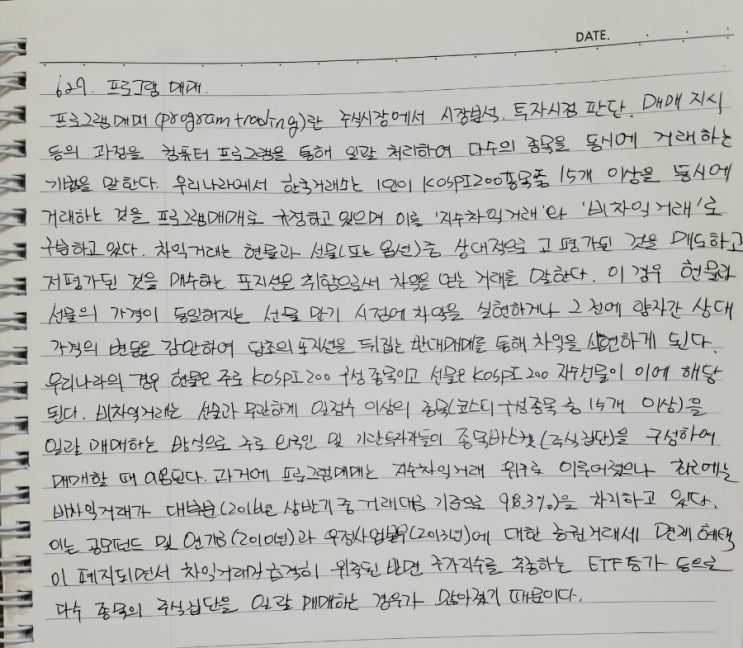 DATE.
629. 프로그램 매매.
프로그램매매(program trading)란 주식시장에서 시장분석, 투자시점 판단, 매매 지시
등의 과정을 컴퓨터 프로그램을 통해 일괄 처리하여 다수의 종목을 동시에 거래하는
기법을 말한다. 우리나라에서 한국거래소는 1인이 KOSPI200종목중 15개 이상을 동시에
거래하는 것을 프로그램매매로 규정하고 있으며 이를 '지수차익거래'와 '비차익거래'로
구분하고 있다. 차익거래는 현물과 선물(또는 옵션)중 상대적으로 고평가된 것을 매도하고
저평가된 것을 매수하는 포지션을 취함으로써 차익을 얻는 거래를 말한다. 이 경우 현물과
선물의 가격이 동일해지는 선물 만기 시점에 차익을 실현하거나 그 전에 양자간 상대
가격의 변동을 감안하여 당초의 포지션을 뒤집는 반대매매를 통해 차익을 실현하게 된다.
우리나라의 경우 현물은 주로 KOSPI200 구성종목이고 선물은 KOSPI200 지수선물이 이에 해당
된다. 비차익거래는 선물과 무관하게 일정수 이상의 종목(코스피 구성종목 중 15개 이상)을
일괄 매매하는 방식으로 주로 외국인 및 기관투자자들이 종목바스켓(주식집단)을 구성하여
매매할 때 이용된다. 과거에 프로그램매매는 지수차익거래 위주로 이루어졌으나 최근에는
비차익거래가 대부분(2016년 상반기 중 거래대금 기준으로 98.3%)을 차지하고 있다.
이는 공모펀드 및 연기금(2010년)과 우정사업본부(2013년)에 대한 증권거래세 면제 혜택
이 폐지되면서 차익거래가 급격히 위축된 반면 주가지수를 추종하는 ETF 증가 등으로
다수 종목의 주식집단을 일괄 매매하는 경우가 많아졌기 때문이다.